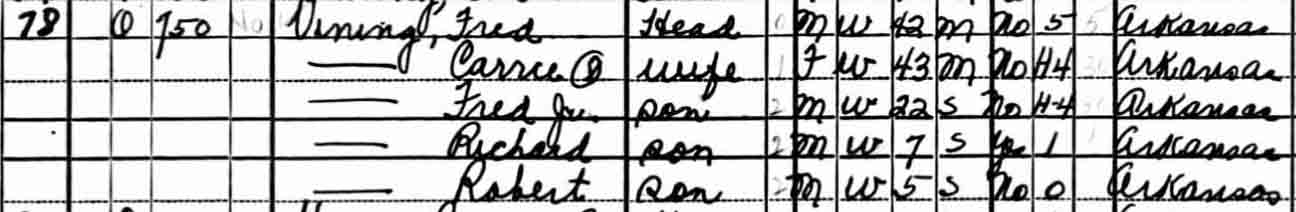 78 O 750 No Vining, Fred Head 0 M W 42 M No 5 5 Arkansas
— Carrie ⓧ wife 1 F W 43 M No H4 30 Arkansas
— Fred Jr. son 2 M W 22 S No H-4 30 Arkansas
— Richard son 2 M W 7 S Yes 1 1 Arkansas
— Robert son 2 M W 5 S No 0 Arkansas